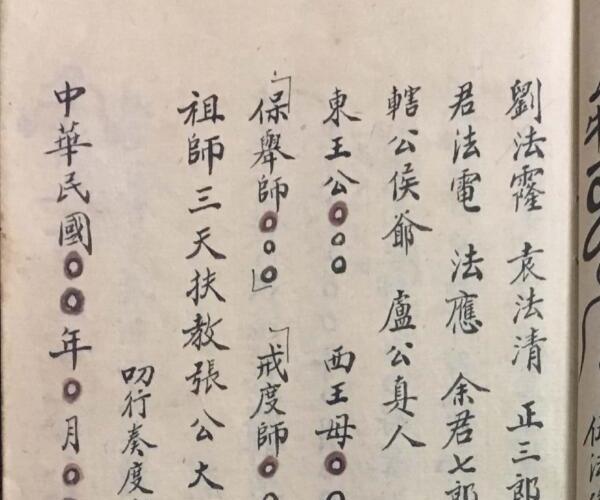 劉法霳 袁法清 正三郎
君法電 法應 余君七郎
轄公侯爺 盧公真人
東王公○○○ 西王母○○
「保舉師○○○」「戒度師○○
祖師三天扶教張公大
叨行奏度
中華民國○○年○月○○